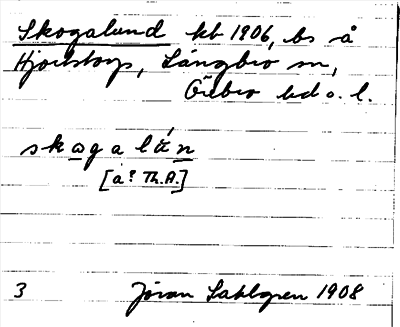 Skogalund kb 1906, bs å
Hjortstorp, Längbro sn,
Örebro hd o. l.
skogalán
[a? Th.A.]
3 Jöran Sahlgren 1908